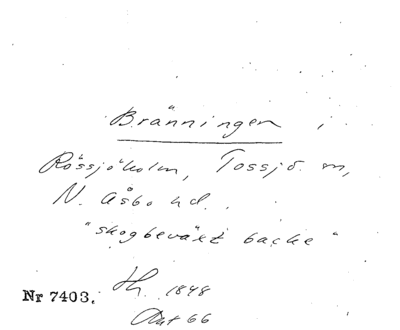 Bränningen,
Rössjöholm, Tossjö sn,
N. Åsbo hd.
"skogbeväxt backe"
1848
Nr 7403.
66